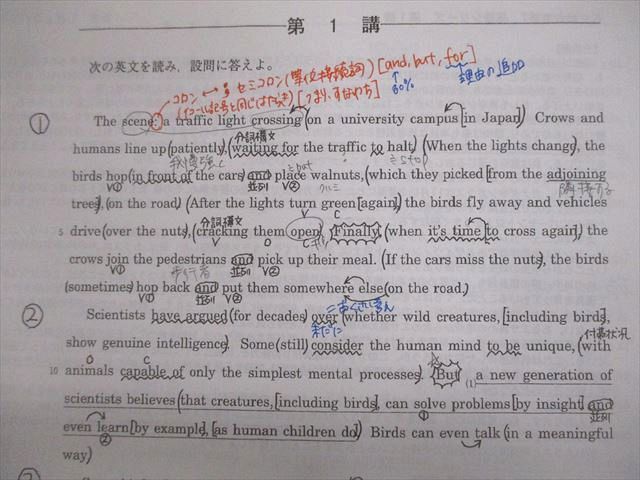 第 1 講
次の英文を読み，設問に答えよ。
コロン ↔ ; セミコロン(等位接続詞) [and, but, for]
(イコール記号と同じはたらき) [つまり、すなわち] 80% 理由の追加
① The scene: a traffic light crossing (on a university campus [in Japan]) Crows and
分詞構文
humans line up (patiently), (waiting for the traffic to halt) (When the lights change), the
我慢強く =put =stop
birds hop (in front of the cars) and place walnuts, (which they picked [from the adjoining
V① 並列 V② クルミ 隣接する
trees], (on the road.) (After the lights turn green [again],) the birds fly away and vehicles
分詞構文 V C
5 drive (over the nuts), (cracking them open) Finally, (when it's time to cross again), the
V O C
crows join the pedestrians and pick up their meal. (If the cars miss the nuts), the birds
V① 歩行者 並列 V②
(sometimes) hop back and put them somewhere else (on the road.)
V① 並列 V②
② Scientists have argued (for decades) over (whether wild creatures, [including birds],
未だに 付帯状況
show genuine intelligence). Some (still) consider the human mind to be unique, (with
O C
10 animals capable of only the simplest mental processes). But (1) a new generation of
scientists believes (that creatures, [including birds], can solve problems [by insight] and
① 並列
even learn [by example], [as human children do]) Birds can even talk (in a meaningful
②
way)